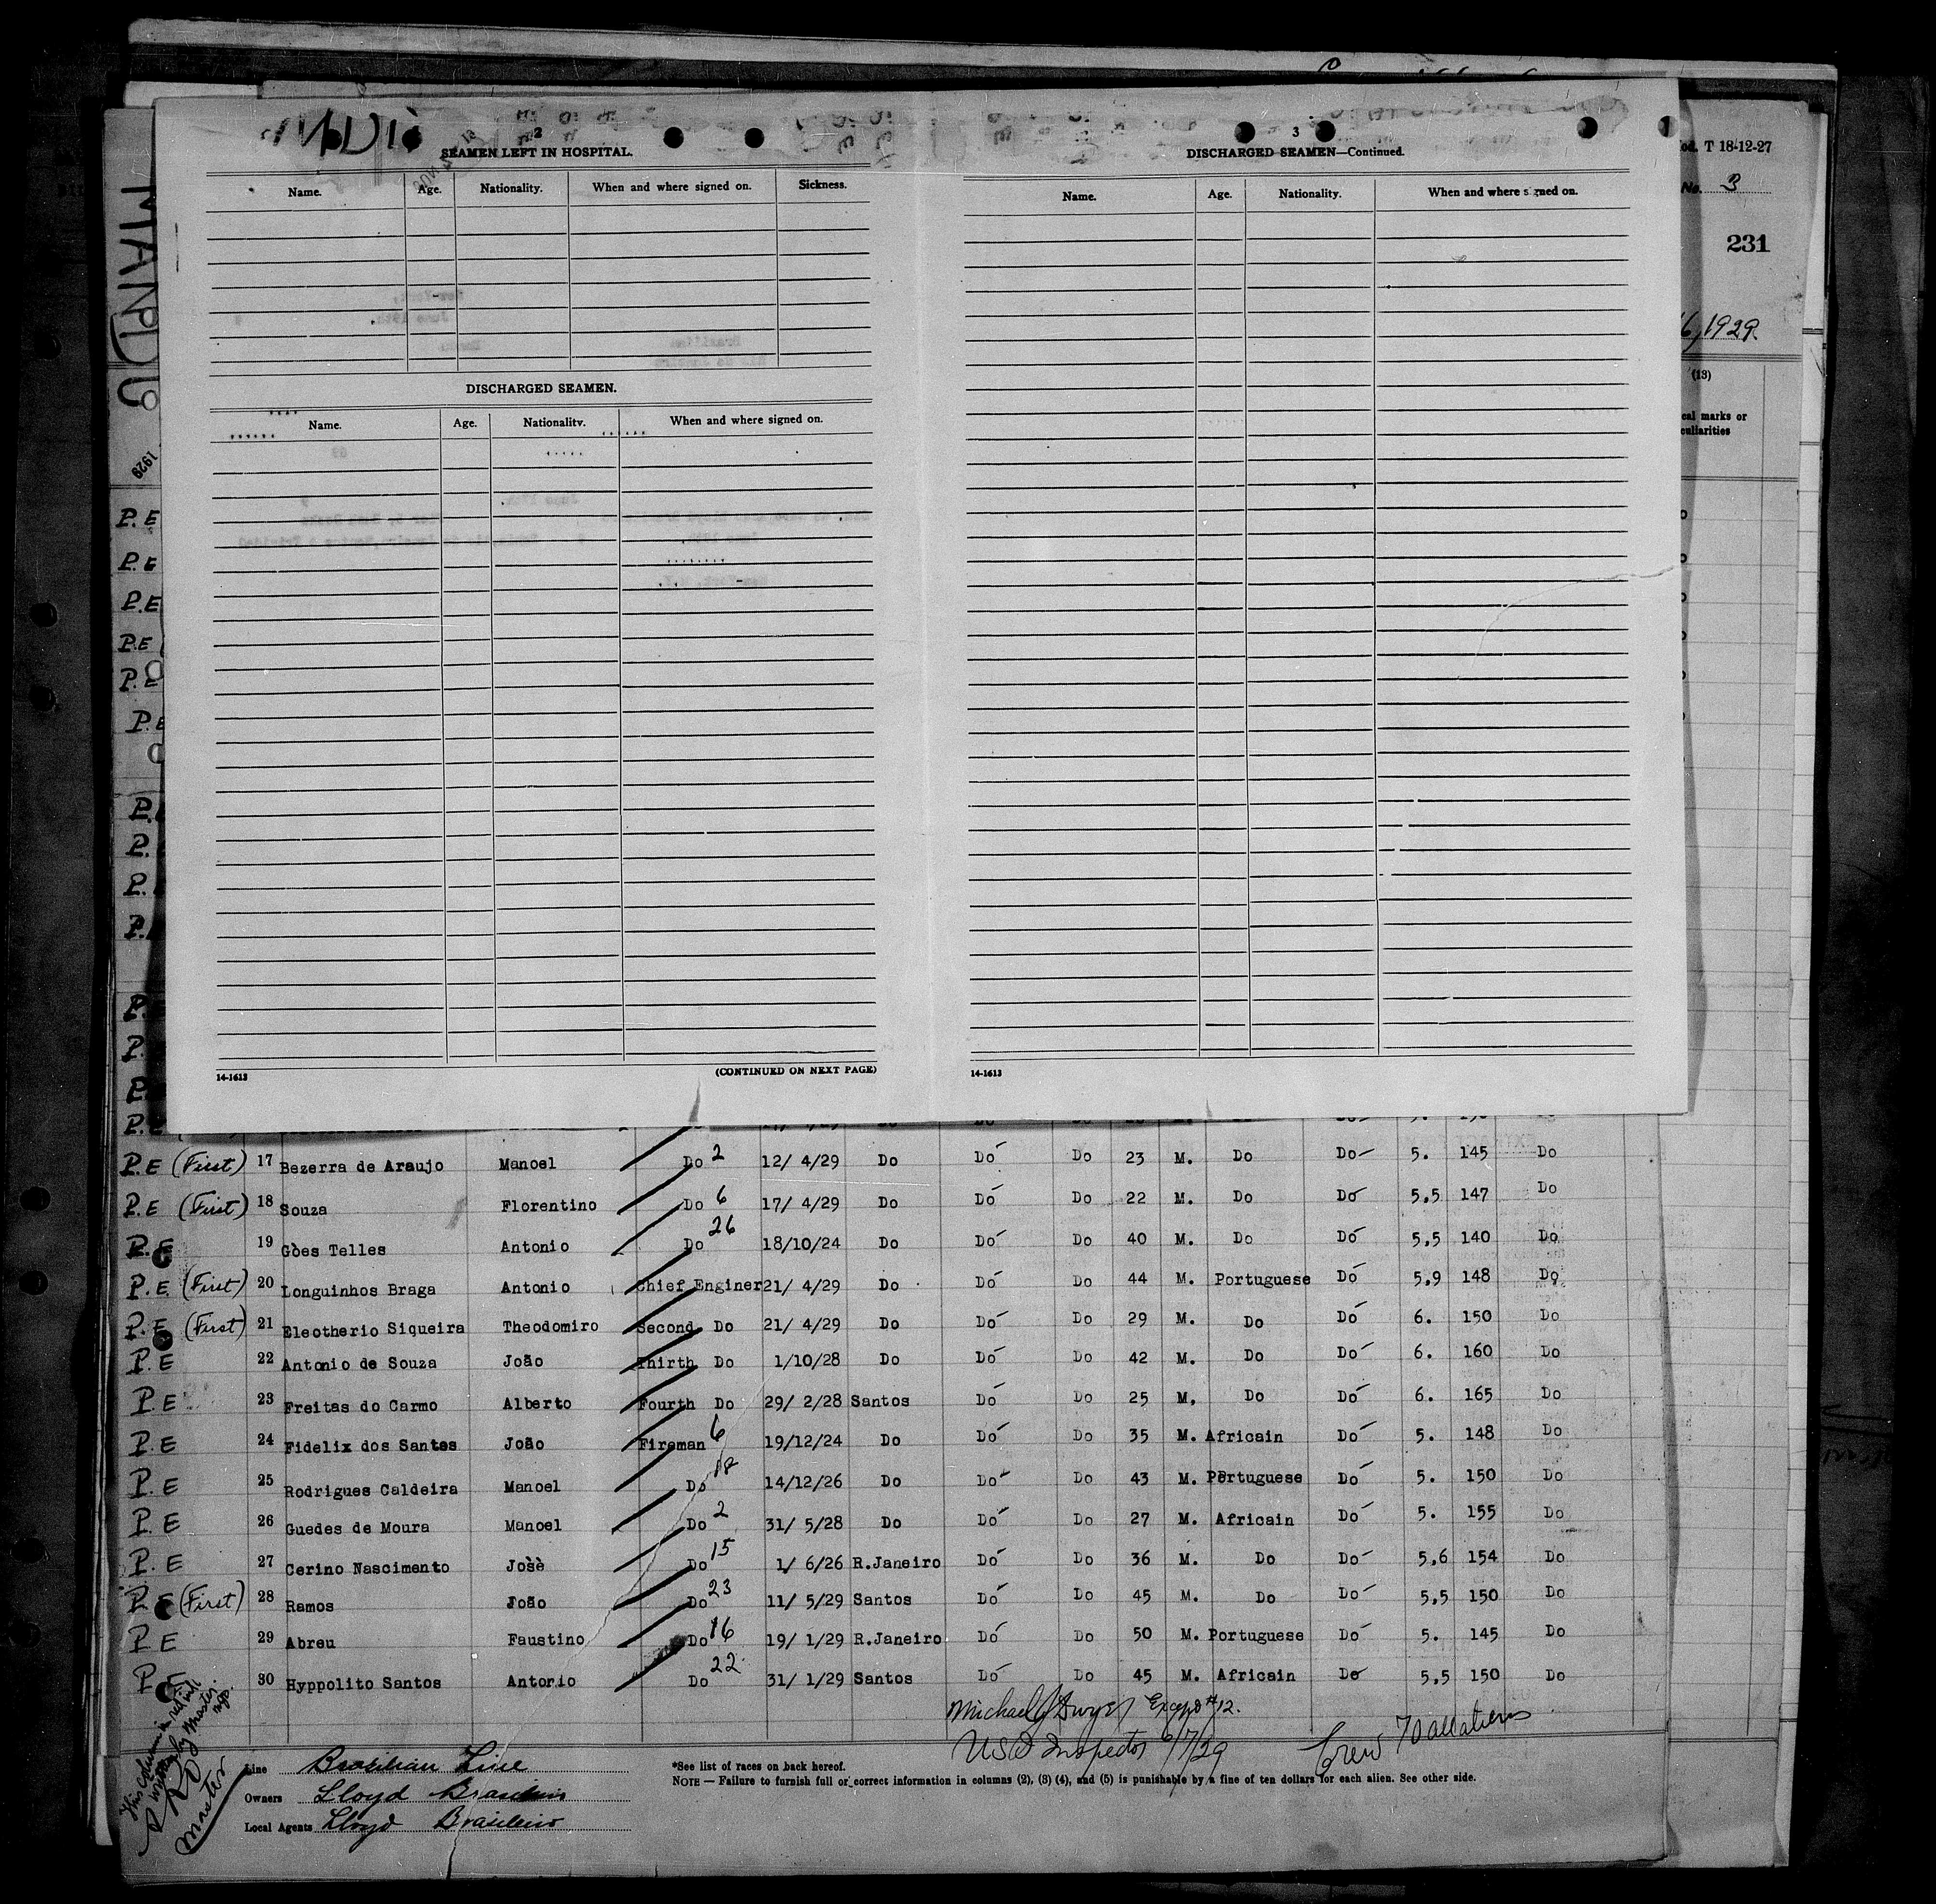 MANDU
1929
Mod. T 18-12-27
No. 3
231
6, 1929
(13)
2
SEAMEN LEFT IN HOSPITAL.
Name. Age. Nationality. When and where signed on. Sickness.
DISCHARGED SEAMEN.
Name. Age. Nationality. When and where signed on.
14-1613 (CONTINUED ON NEXT PAGE)
3
DISCHARGED SEAMEN—Continued.
Name. Age. Nationality. When and where signed on.
14-1613
P.E
P.E
P.E
P.E
P.E
P.E
P.E (First) 17 Bezerra de Araujo Manoel Do 2 12/ 4/29 Do Do Do 23 M. Do Do 5. 145 Do
P.E (First) 18 Souza Florentino Do 6 17/ 4/29 Do Do Do 22 M. Do Do 5,5 147 Do
P.E 19 Gòes Telles Antonio Do 26 18/10/24 Do Do Do 40 M. Do Do 5,5 140 Do
P.E (First) 20 Longuinhos Braga Antonio Chief Enginer 21/ 4/29 Do Do Do 44 M. Portuguese Do 5,9 148 Do
P.E (First) 21 Eleotherio Siqueira Theodomiro Second Do 21/ 4/29 Do Do Do 29 M. Do Do 6. 150 Do
P.E 22 Antonio de Souza João Thirth Do 1/10/28 Do Do Do 42 M. Do Do 6. 160 Do
P.E 23 Freitas do Carmo Alberto Fourth Do 29/ 2/28 Santos Do Do 25 M. Do Do 6. 165 Do
P.E 24 Fidelix dos Santos João Fireman 6 19/12/24 Do Do Do 35 M. Africain Do 5. 148 Do
P.E 25 Rodrigues Caldeira Manoel Do 18 14/12/26 Do Do Do 43 M. Portuguese Do 5. 150 Do
P.E 26 Guedes de Moura Manoel Do 2 31/ 5/28 Do Do Do 27 M. Africain Do 5. 155 Do
P.E 27 Cerino Nascimento Josè Do 15 1/ 6/26 R.Janeiro Do Do 36 M. Do Do 5,6 154 Do
P.E (First) 28 Ramos João Do 23 11/ 5/29 Santos Do Do 45 M. Do Do 5,5 150 Do
P.E 29 Abreu Faustino Do 16 19/ 1/29 R.Janeiro Do Do 50 M. Portuguese Do 5. 145 Do
P.E 30 Hyppolito Santos Antonio Do 22 31/ 1/29 Santos Do Do 45 M. Africain Do 5,5 150 Do
Michael J Dwyer Except #12.
US I Inspector 6/7/29
Crew 70 all aliens
Master
Line Brasilian Line
Owners Lloyd Brasileiro
Local Agents Lloyd Brasileiro
*See list of races on back hereof.
NOTE — Failure to furnish full or correct information in columns (2), (3) (4), and (5) is punishable by a fine of ten dollars for each alien. See other side.